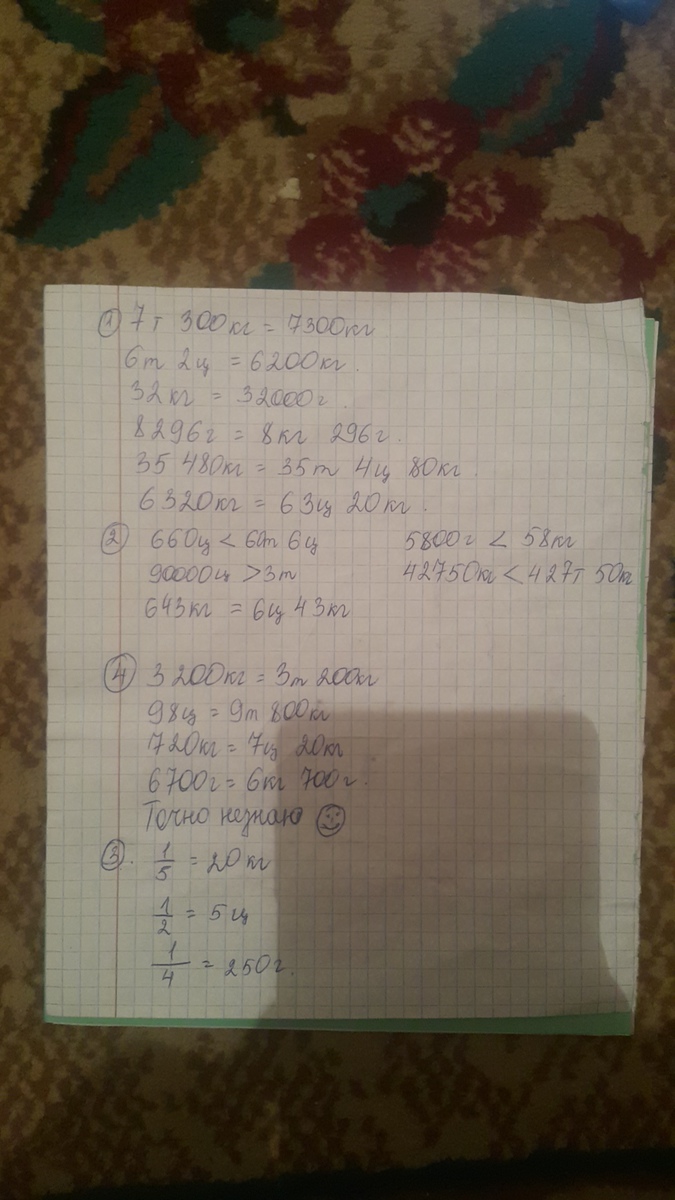 ① 7т 300кг = 7300кг
6т 2ц = 6200кг.
32кг = 32000г.
8296г = 8кг 296г.
35 480кг = 35т 4ц 80кг.
6320кг = 63ц 20кг.
② 660ц < 60т 6ц 5800г < 58кг
90000ц > 3т 42750кг < 427т 50кг
643кг = 6ц 43кг
④ 3 200кг = 3т 200кг
98ц = 9т 800кг
720кг = 7ц 20кг
6700г = 6кг 700г.
Точно незнаю ☺
③. 1/5 = 20кг
1/2 = 5ц
1/4 = 250г.